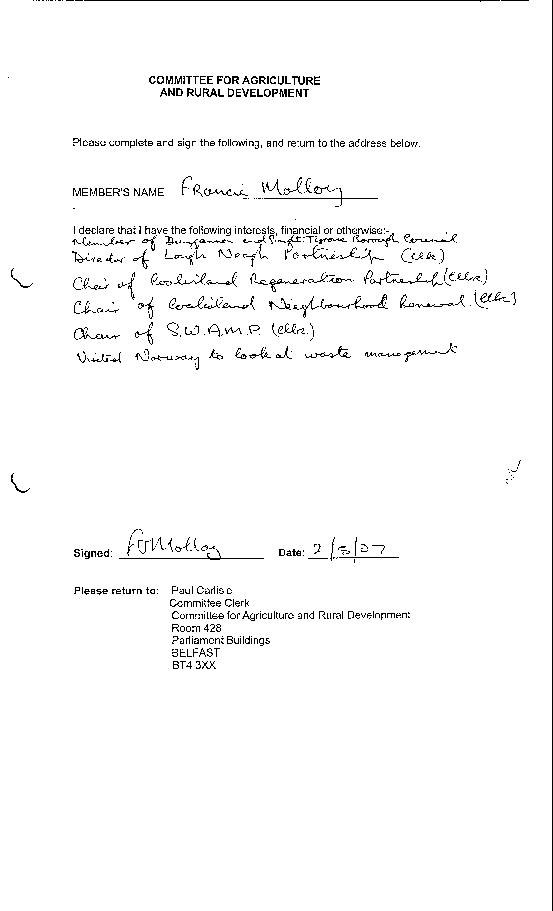 COMMITTEE FOR AGRICULTURE
AND RURAL DEVELOPMENT
Please complete and sign the following, and return to the address below.
MEMBER'S NAME Francie Molloy
I declare that I have the following interests, financial or otherwise:-
Member of Dungannon and South Tyrone Borough Council
Director of Lough Neagh Partnership (Cllr)
Chair of Coalisland Regeneration Partnership (Cllr)
Chair of Coalisland Neighbourhood Renewal (Cllr)
Chair of S.W.A.M.P. (Cllr.)
Visited Norway to look at waste management
Signed: FJMolloy Date: 2/ /07
Please return to: Paul Carlisle
Committee Clerk
Committee for Agriculture and Rural Development
Room 428
Parliament Buildings
BELFAST
BT4 3XX